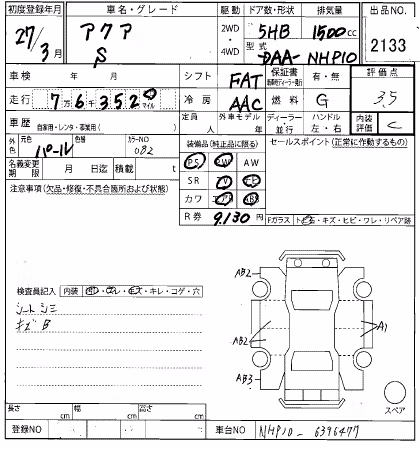 初度登録年月 車名・グレード 駆動 ドア数・形状 排気量 出品NO.
27/3月 アクア S 2WD・4WD 5HB 1500cc 2133
型式 DAA-NHP10
車検 年 月 シフト FAT 保証書 有・無 評価点
走行 7万6千352 マイル 冷房 AAC 燃料 G 3.5
車歴 自家用・レンタ・事業用( ) 定員 人 外車モデル 年 ディーラー・並行 ハンドル 左・右 内装評価 C
外色 元色 パール 色替 カラーNO 082 装備品(純正品に限る) セールスポイント(正常に作動するもの)
PS PW AW
名義変更期限 月 日迄 積載 t SR TV ナビ
注意事項(欠品・修復・不具合箇所および状態) カワ エアB ABS
R券 9,130円 Fガラス トビ石・キズ・ヒビ・ワレ・リペア跡
検査員記入 内装 ・スレ・キズ・キレ・コゲ・穴
シートシミ
キズB
AB2
AB2
AB3
A1
スペア
長さ cm 幅 cm 高さ cm
登録NO 車台NO NHP10-6396477